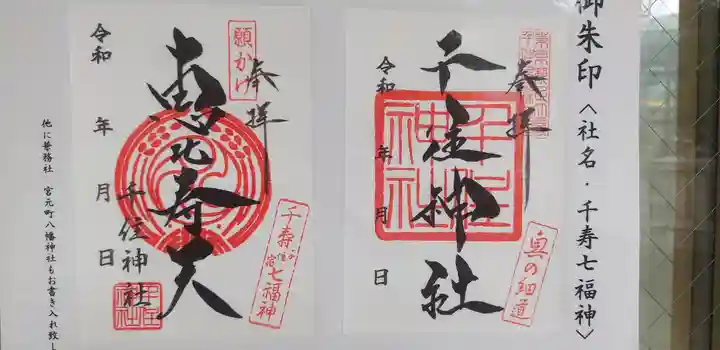 御朱印〈社名・千寿七福神〉
奉拝
千住神社
令和
年
月
日
千住神社
奥の細道
願かけ
奉拝
恵比寿天
令和
年
月
日
千住神社
千寿七福神
千住宿
他に兼務社 宮元町八幡神社もお書き入れ致し